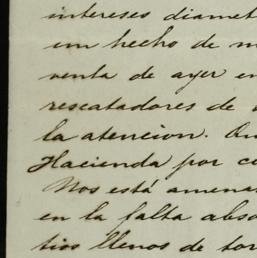 intereses diamet
un hecho de m
venta de ayer en
rescatadores de
la atencion. Qu
Hacienda por co
Nos está amena
en la falta abso
tios llenos de tor